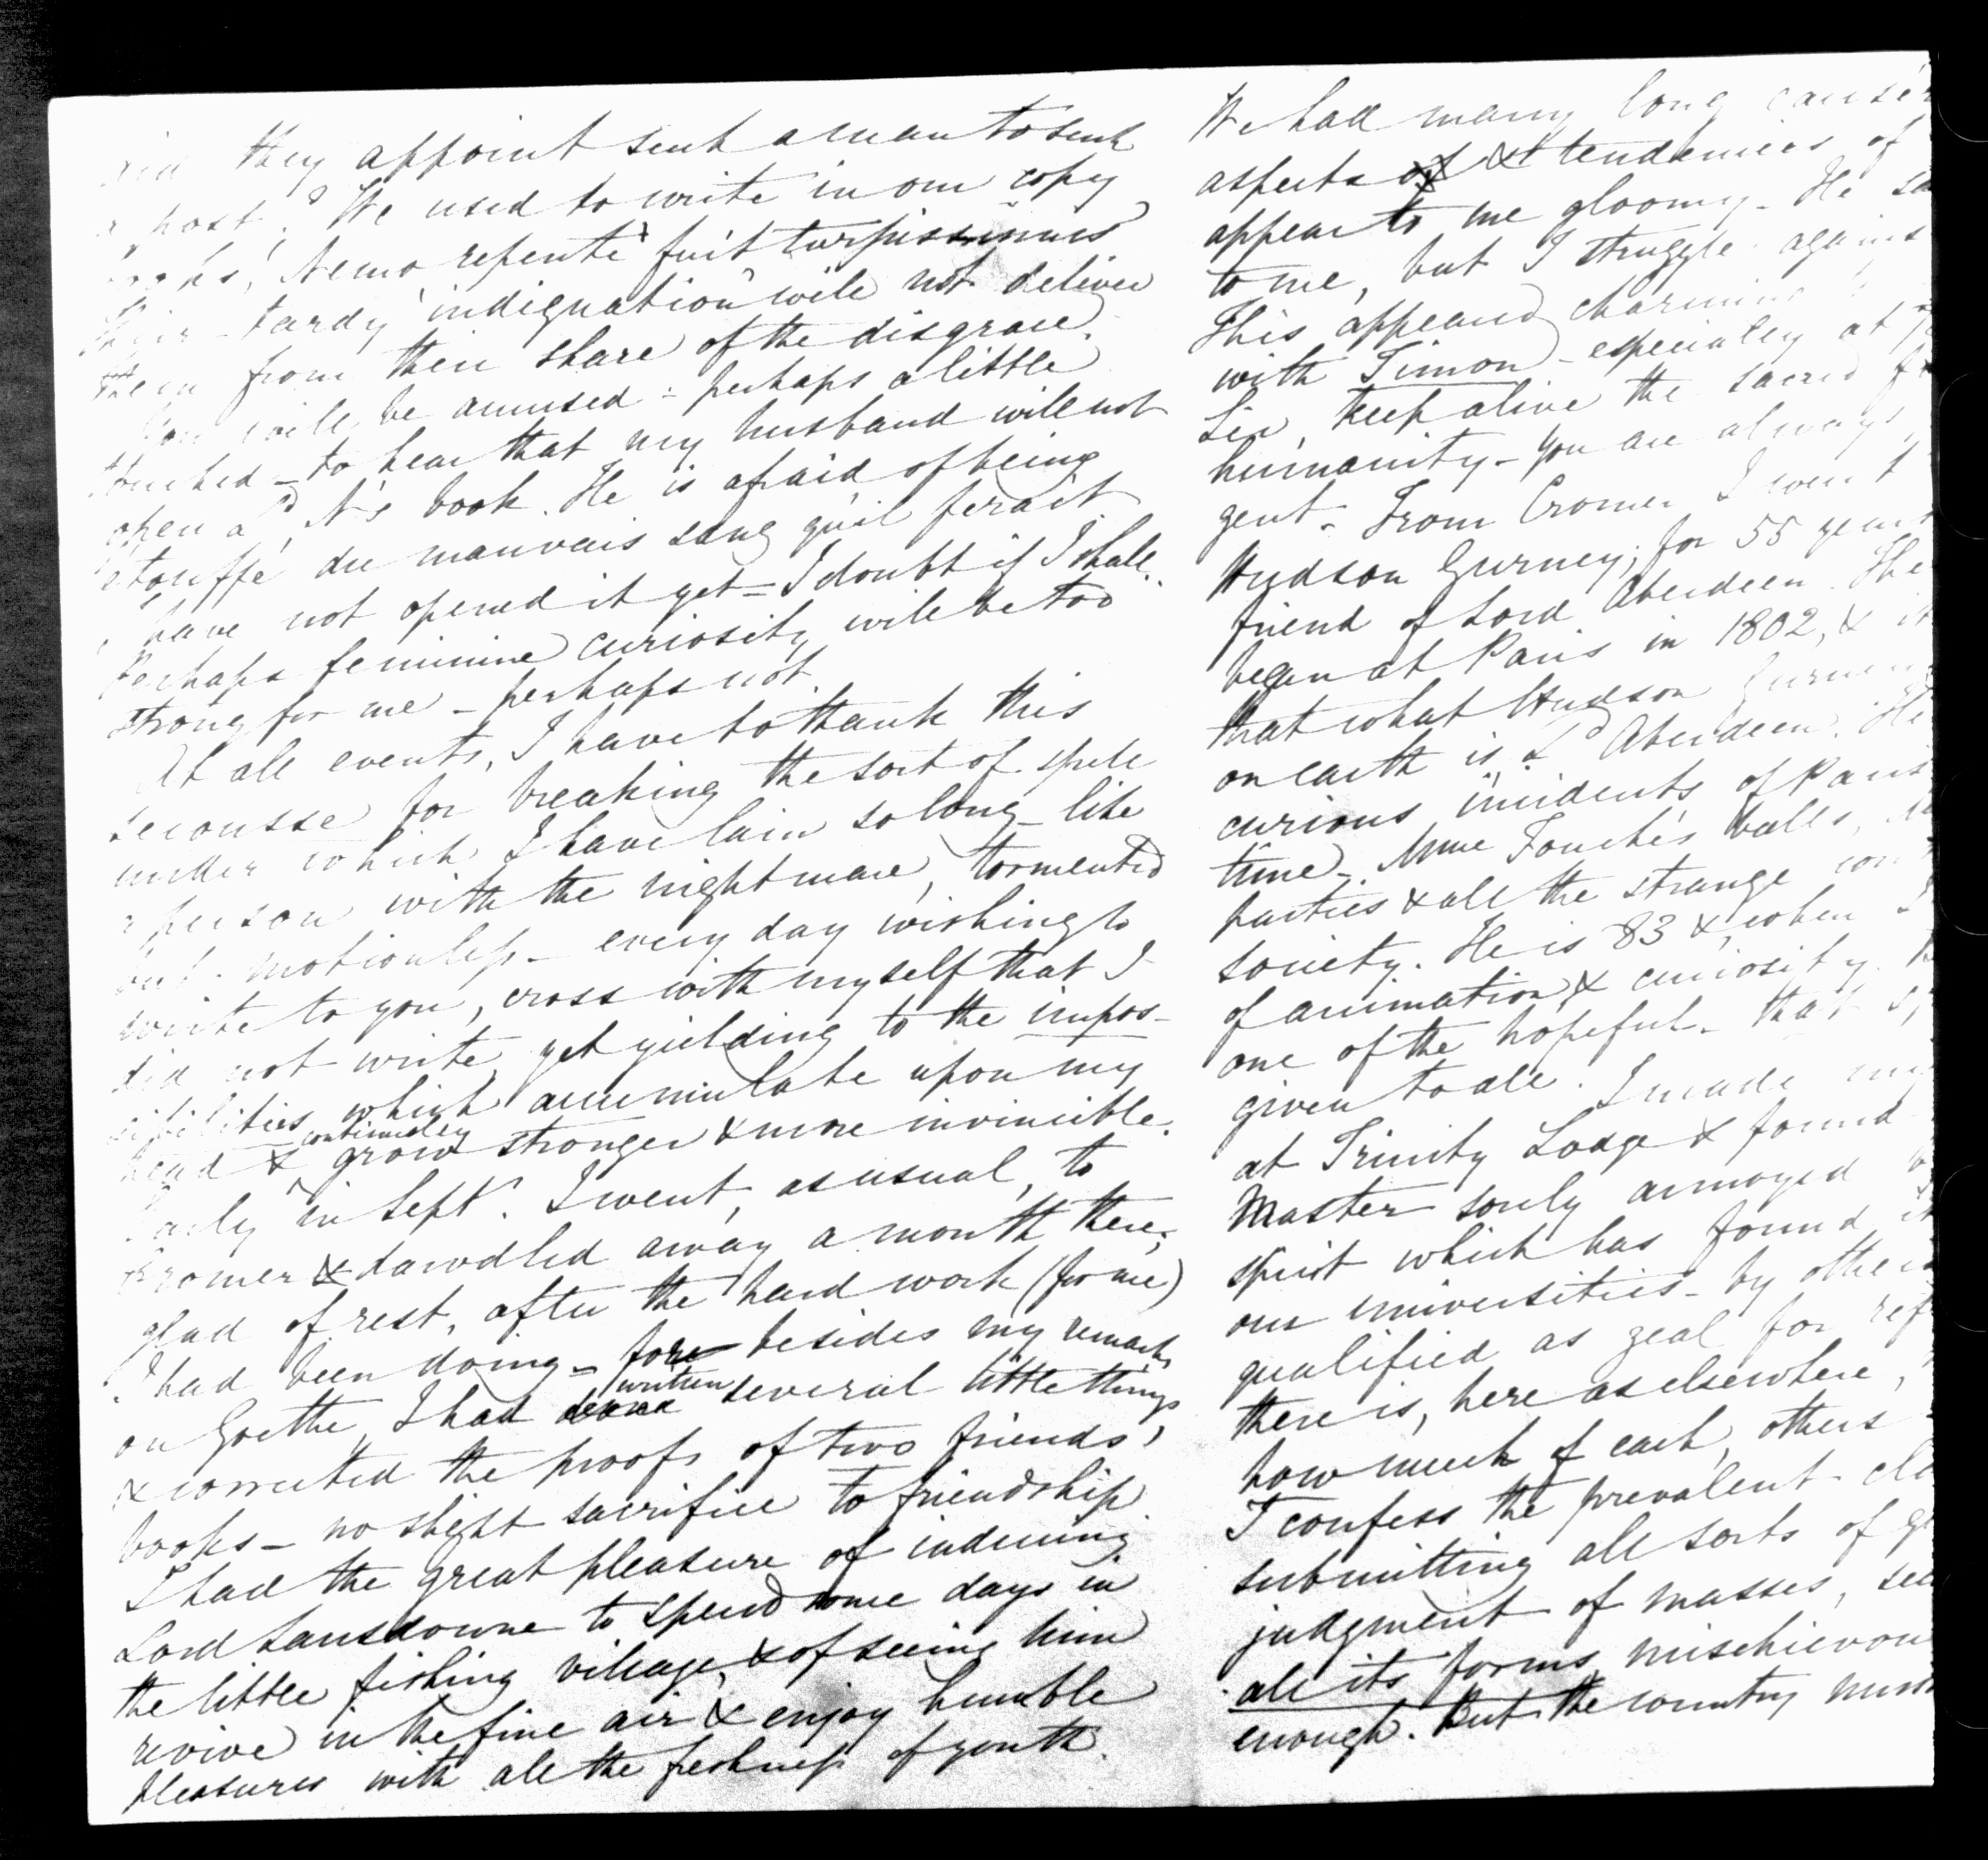 did they appoint such a man to such
a post? We used to write in our copy
books, Nemo repente fuit turpissimus
Their tardy indignation will not deliver
them from their share of the disgrace.
You will be amused - perhaps a little
touched - to hear that my husband will not
open a N's book. He is afraid of being
étouffé du mauvais sang qu'il ferait
I have not opened it yet - I doubt if I shall.
Perhaps feminine curiosity will be too
strong for me - perhaps not.
At all events, I have to thank this
secousse for breaking the sort of spell
under which I have lain so long - like
a person with the nightmare, tormented
but motionless - every day wishing to
write to you, cross with myself that I
did not write, yet yielding to the impos-
sibilities which accumulate upon my
head & continually grow stronger & more invincible.
Early in Sept. I went, as usual, to
Cromer & dawdled away a month there;
glad of rest, after the hard work (for me)
I had been doing - for besides my remarks
on Goethe, I had written several little things
& corrected the proofs of two friends'
books - no slight sacrifice to friendship
I had the great pleasure of inducing
Lord Lansdowne to spend some days in
the little fishing village, & of seeing him
revive in the fine air & enjoy humble
pleasures with all the freshness of youth.
We had many long
aspects & tendencies of
appear to me gloomy - He
to me, but I struggle against
This appeared charming
with Simon - especially at
Sir, keep alive the sacred
humanity - you are always
gent - From Cromer I went
Hudson Gurney; for 55 years
friend of Lord Aberdeen. The
began at Paris in 1802, &
that what Hudson Gurney
on earth is Ld Aberdeen. He
curious incidents of Paris
time - Mme Fouché's balls,
parties & all the strange
society. He is 83 & when I
of animation & curiosity.
one of the hopeful - that
given to all. I made my
at Trinity Lodge & found
Master sorely annoyed
spirit which has found
our universities - by others
qualified as zeal for
there is, here as elsewhere,
how much of each, others
I confess the prevalent
submitting all sorts of
judgment of masses,
all its forms mischievous
enough. But the country must